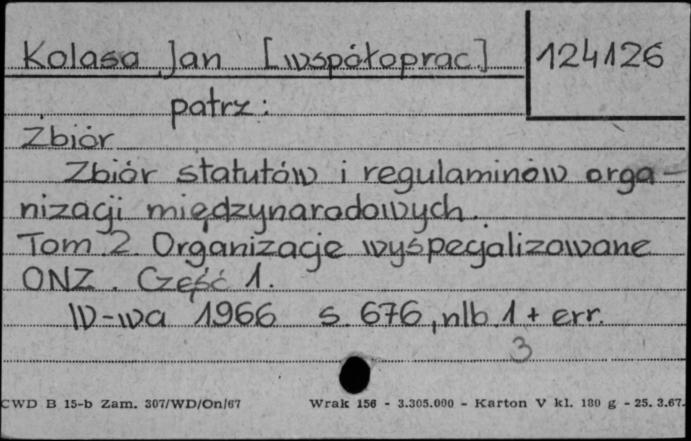 Kolasa Jan [współoprac] 124126
patrz:
Zbiór
Zbiór statutów i regulaminów orga-
nizacji międzynarodowych.
Tom 2. Organizacje wyspecjalizowane
ONZ. Część 1.
W-wa 1966 s. 676, nlb. 1 + err.
3
CWD B 15-b Zam. 307/WD/On/67 Wrak 156 - 3.305.000 - Karton V kl. 180 g - 25. 3.67.